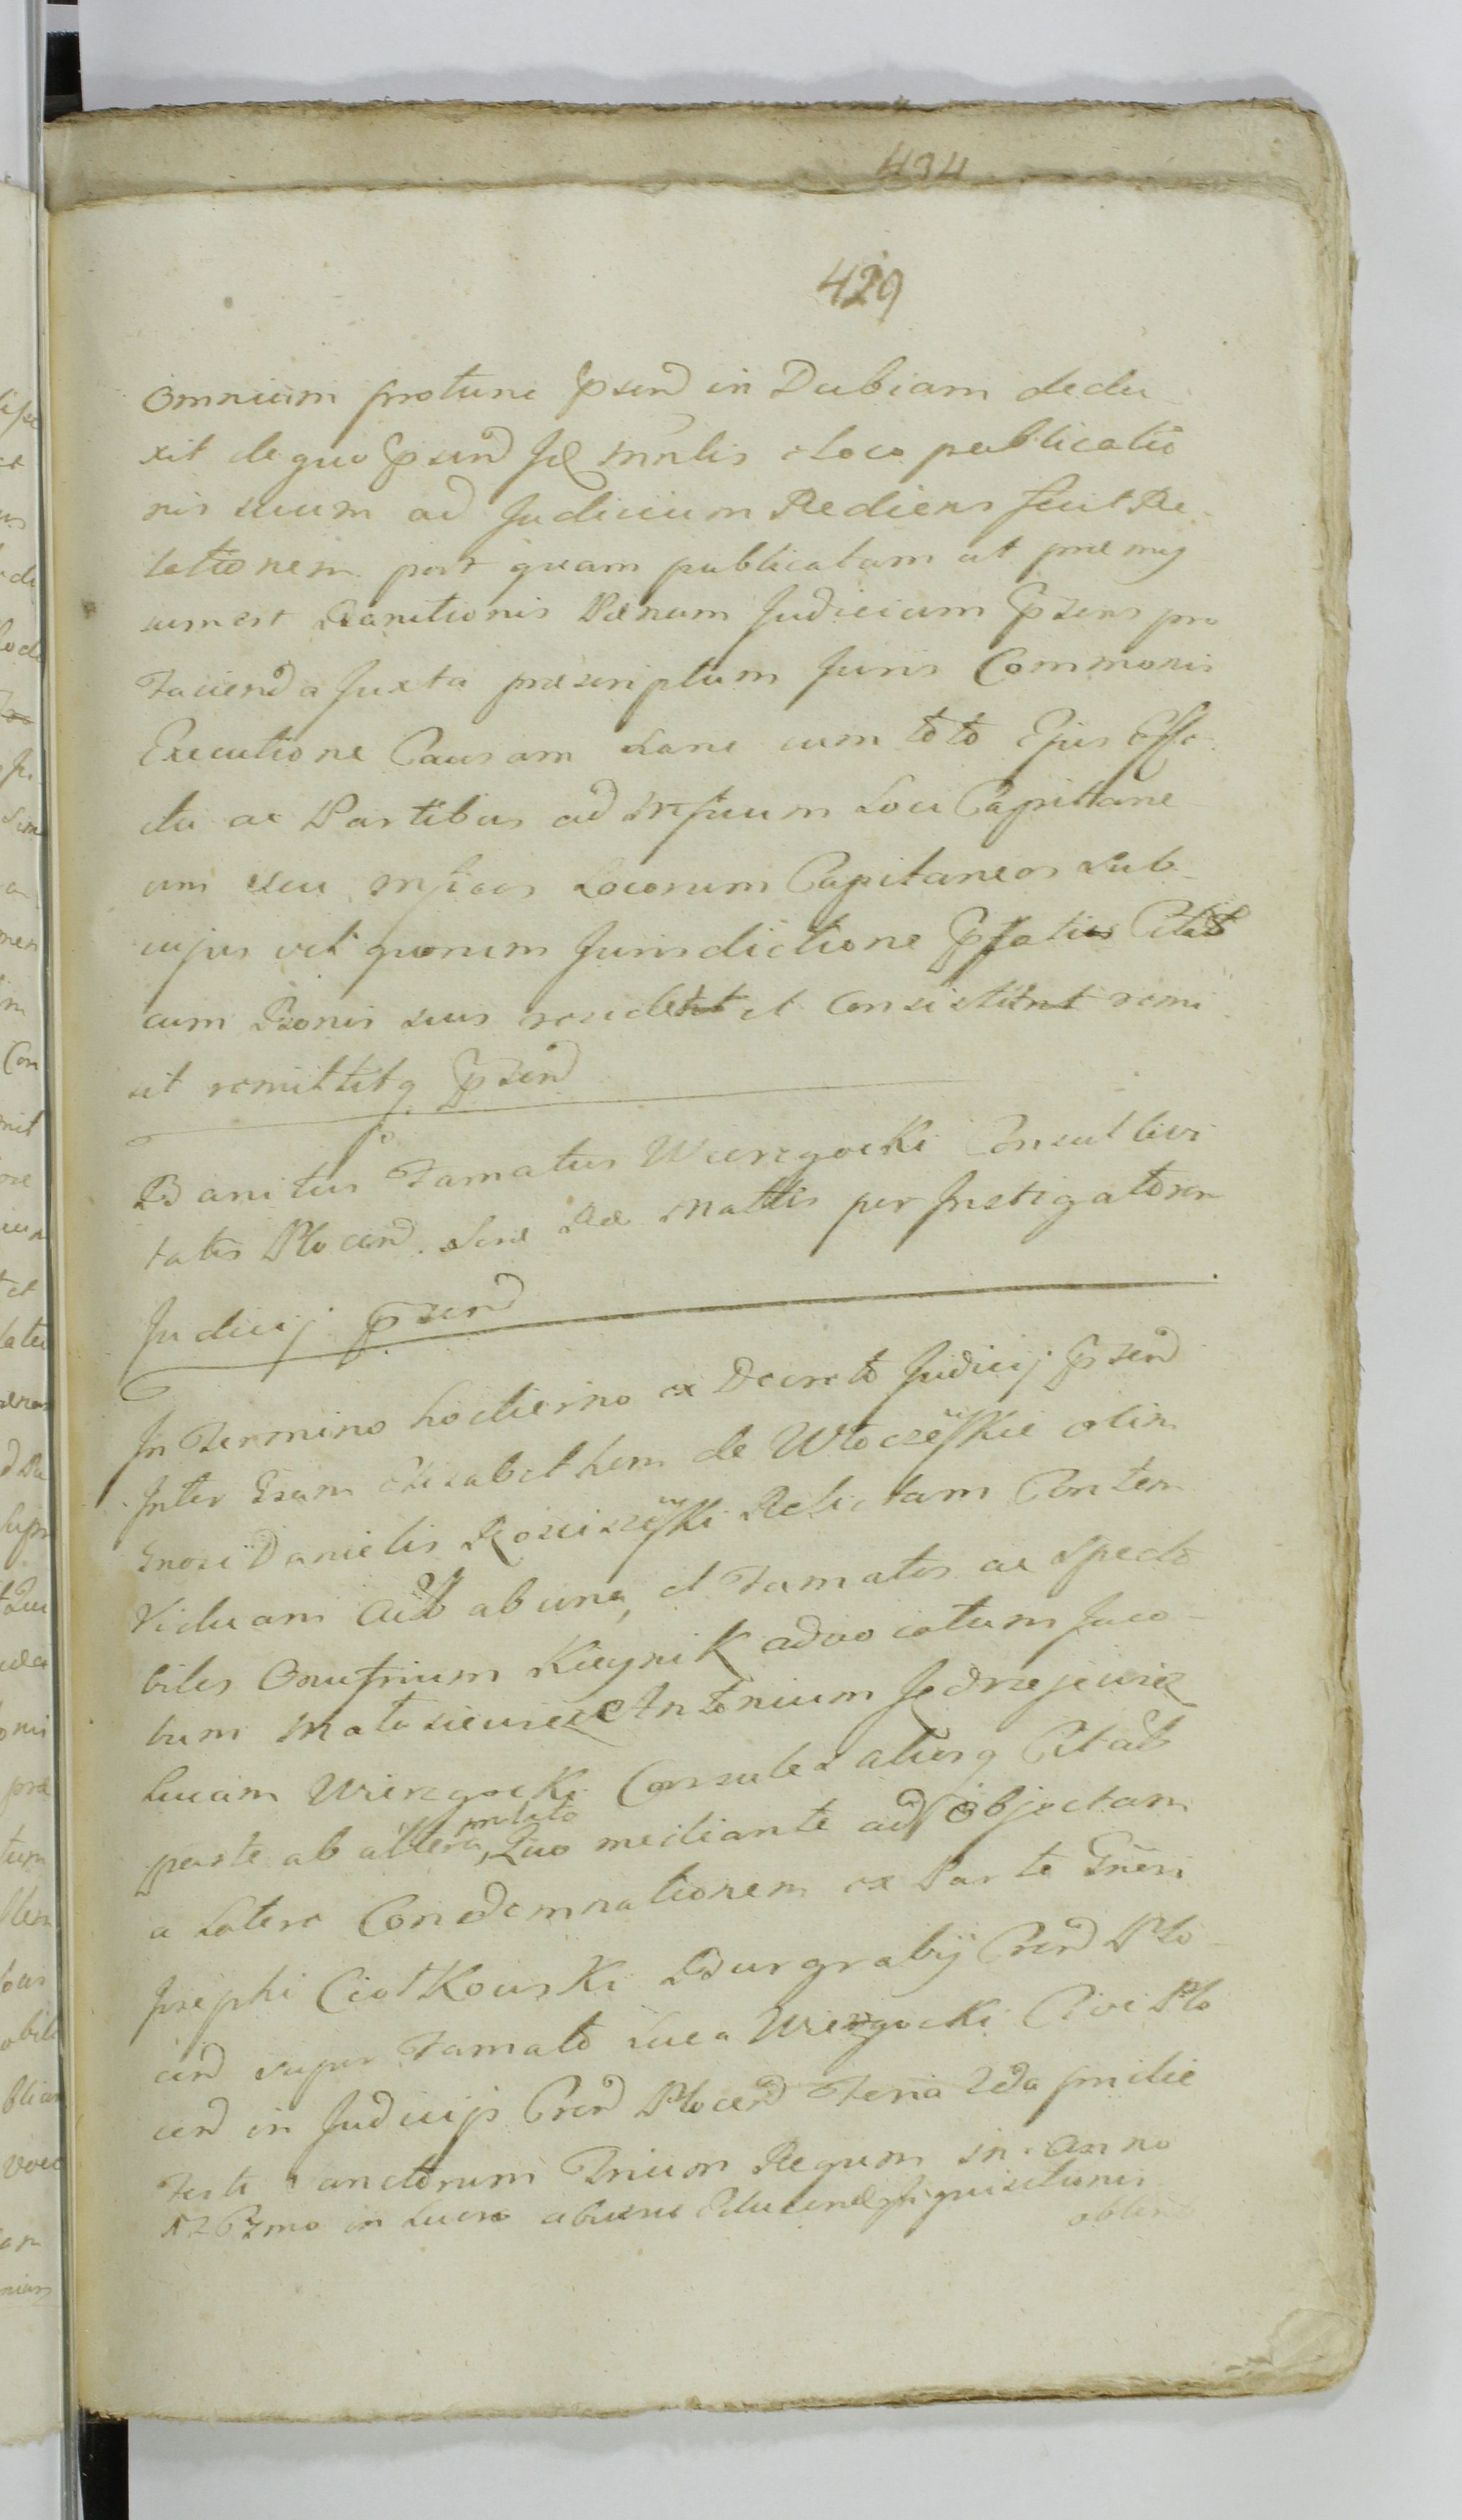 434
429
Omnium protunc Psend in Dubiam dedu
xit de quo Psend Jd Mnlis e Loco publicatio
nis suum ad Judicium Rediens fecit Re
lationem post quam publicatam ut præmis
sum est Banitionis Pænam Judicium Psens pro
facienda Juxta præscriptum Juris Communis
Executione Causam hanc cum toto Ejus Effe
ctu ac Partibus ad Mficum Loci Capitane
um seu Mficos Locorum Capitaneos sub
cujus vel quorum Jurisdictione Pfatus Citat
cum Bonis suis residet et Consistit remi
sit remittitq Psend
Banitus Famatus Wierzgocki Consul Civi
tatis Plocen. Sacræ Ræ Mattis per Instigatorem
Judicij Psend
In Termino hodierno ex Decreto Judicij Psend
Inter Gsam Elisabethem de Włoczewskie olim
Gnosi Danielis Rosciszewski Relictam Conten
Viduam Actr ab una, et Famatos ac Specta
biles Onufrium Kieynik advocatum Jaco
bum Matusiewicz Antonium Jędrzejewicz
Lucam Wierzgocki Consules aliosq Citatos
parte ab altera, Quo mediante ad Objectam
a Latere Condemnationem ex Parte Gnesi
Josephi Ciołkowski Burgrabij Cren Plo
cen super Famato Luca Wierzgocki Cive Plo
cen in Judicijs Cren Plocen Feria 2da pridie
Festi Sanctorum Trium Regum in Anno
1767mo in Lucro